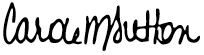 Carole M Sutton